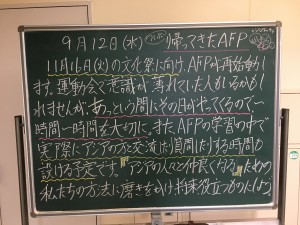 9月12日(水) 帰ってきたAFP
11月16日(火)の文化祭に向け、AFPが再始動し
ます。運動会で意識が薄れていた人もいるかもし
れませんが、あっという間にその日が来てくるので一
時間一時間を大切に。またAFPの学習の中で
実際にアジアの方と交流したり質問したりする時間も
設ける予定です。『アジアの人々と仲良くなる』ための
私たちの方法に磨きをかけ将来役立つものにしよう